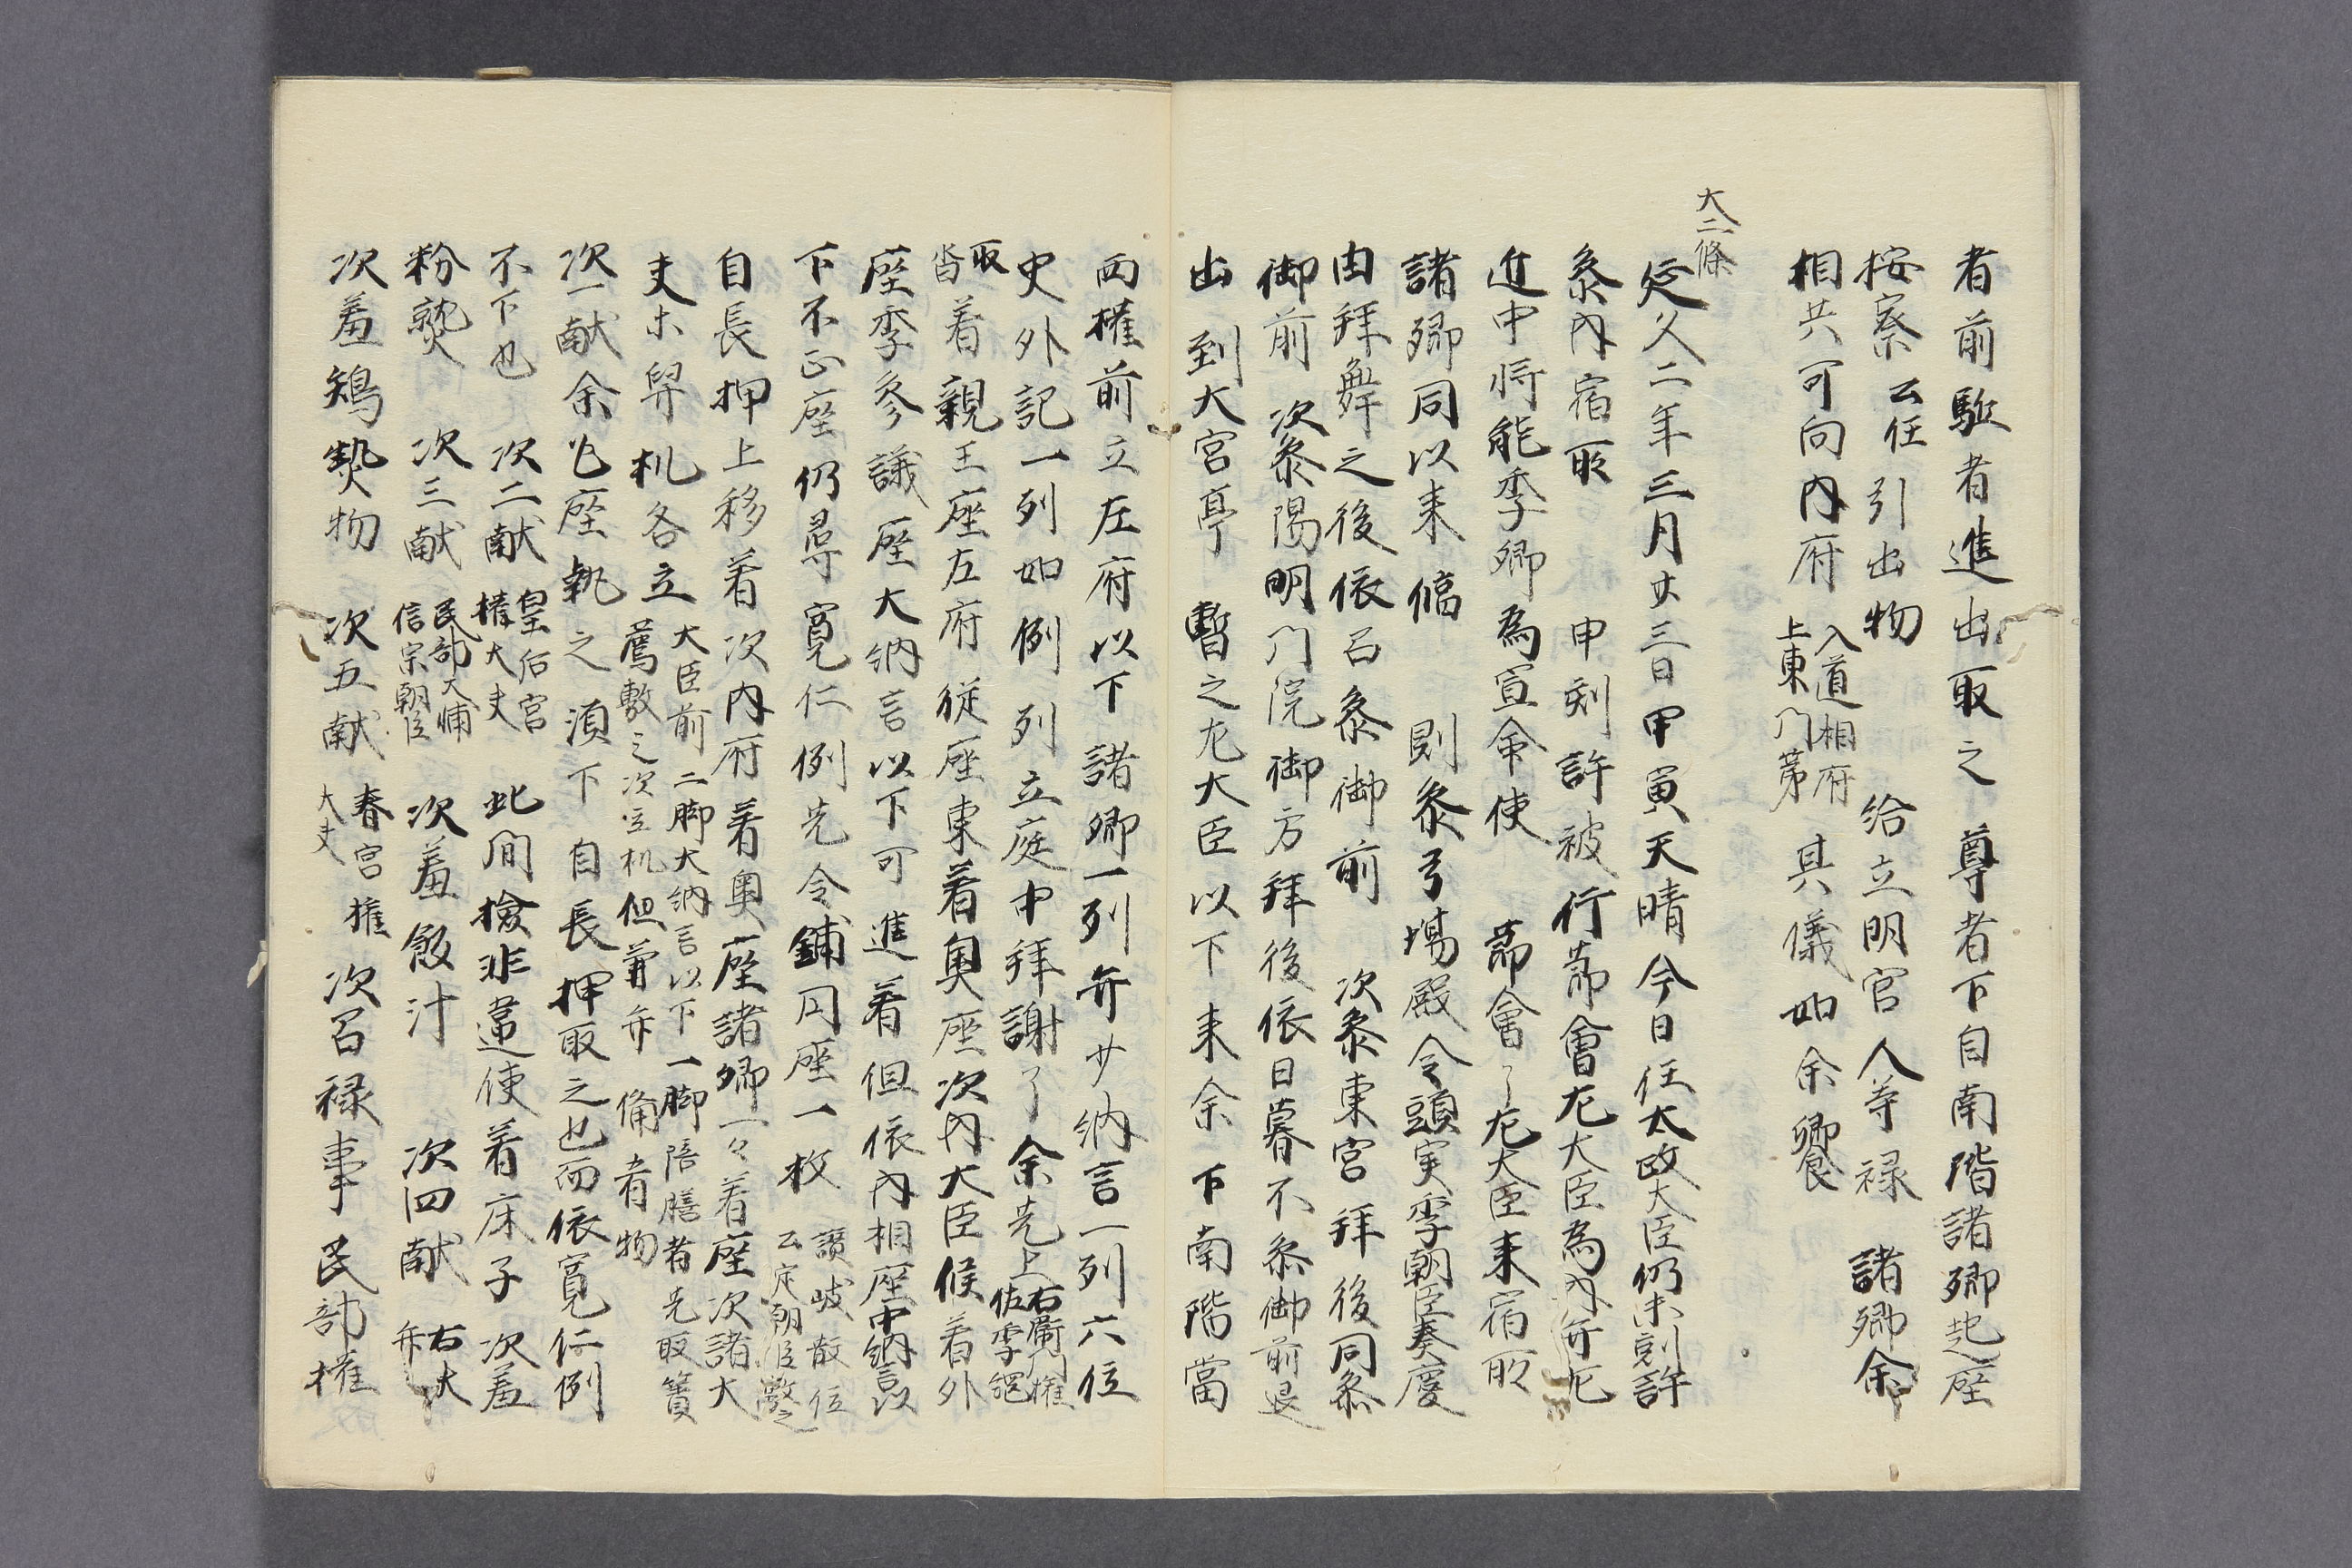 者前駈者進出取之　尊者下自南階諸卿起座
按察云任引出物　　給立明官人等禄　諸卿余
相共可向内府入道相府上東门第　其儀如余卿食
大二條
延久二年三月廿三日甲寅天晴今日任太政大臣仍未剋許
参内宿所　　申剋許被行莭會左大臣為内弁左
近中将能季卿為宣命使　　莭會了左大臣来宿所
諸卿同以来偹　　則参弓場殿令頭実季朝臣奏慶
由拜舞之後依召参御前　　次参東宮拜後同参
御前　次参陽明门院御方拜後依日暮不参御前退
出　到大宮亭　暫之左大臣以下来余下南階當
西榷前立左府以下諸卿一列弁少納言一列六位
史外記一列如例　列立庭中拜謝了余先上右衛门権佐季綱
取沓着親王座左府従座東着奥座次内大臣候着外
座季参議座大納言以下可進着但依内相座中納言以
下不正座仍尋寛仁例先令鋪円座一枚讃岐散位公定朝臣敷之
自長押上移着次内府着奥座諸卿一々着座次諸大
夫木舁机各立大臣前二脚大納言以下一脚陪膳者先取簀薦敷之次立机但兼弁俻者物
次一献余乍座執之須下　自長押取之也而依寛仁例
不下也　次二献皇后宮権大夫　此间撿非違使着床子　次羞
粉熟　次三献民部大輔信宗朝臣　次羞飯汁　　次四献右大弁
次羞鴙𤍠物　次五献春宮権大夫　次召禄事民部権